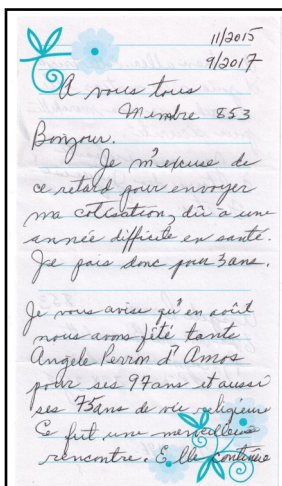 11/2015
9/2017
A vous tous
Membre 853
Bonjour.
Je m'excuse de
ce retard pour envoyer
ma cotisation, dû a une
année difficile en santé.
Je pais donc pour 3 ans.
Je vous avise qu'en août
nous avons fêté tante
Angele Perron d'Amos
pour ses 97 ans et aussi
ses 75 ans de vie religieuse
Ce fut une merveilleuse
rencontre. Elle continue